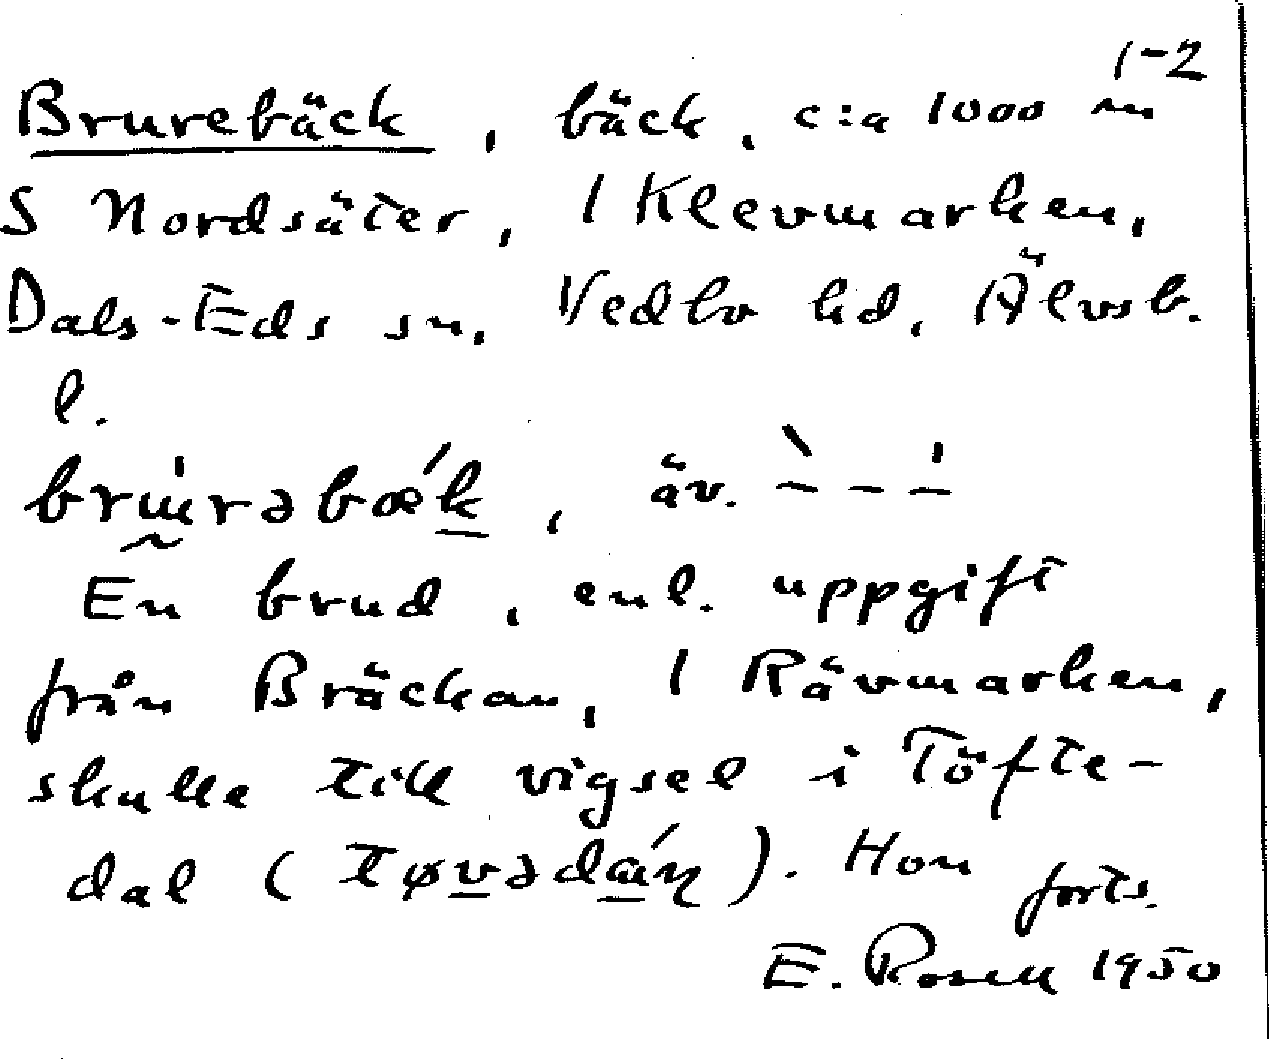 1-2
Brurebäck, bäck, c:a 1000 m
S Nordsäter, 1 Klevmarken,
Dals-Eds sn, Vedbo hd, Älvsb.
l.
äv. ` - - -́
En brud, enl. uppgift
från Bräckan, 1 Rävmarken,
skulle till vigsel i Töfte-
dal ( ). Hon forts.
E. Rosell 1950